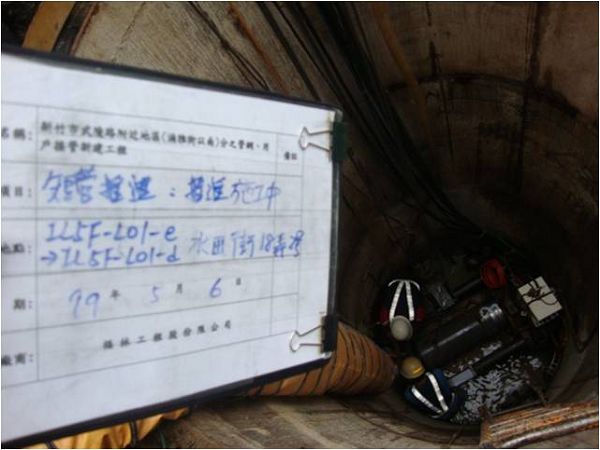 名稱: 新竹市武陵路附近地區(湳雅街以南)分之管網、用
戶接管新建工程 備註
項目: 推進: 推進施工中
地點: IL5F-L01-e
→IL5F-L01-d 水田街18弄
期: 99年5月6日
廠商: 工程股份有限公司